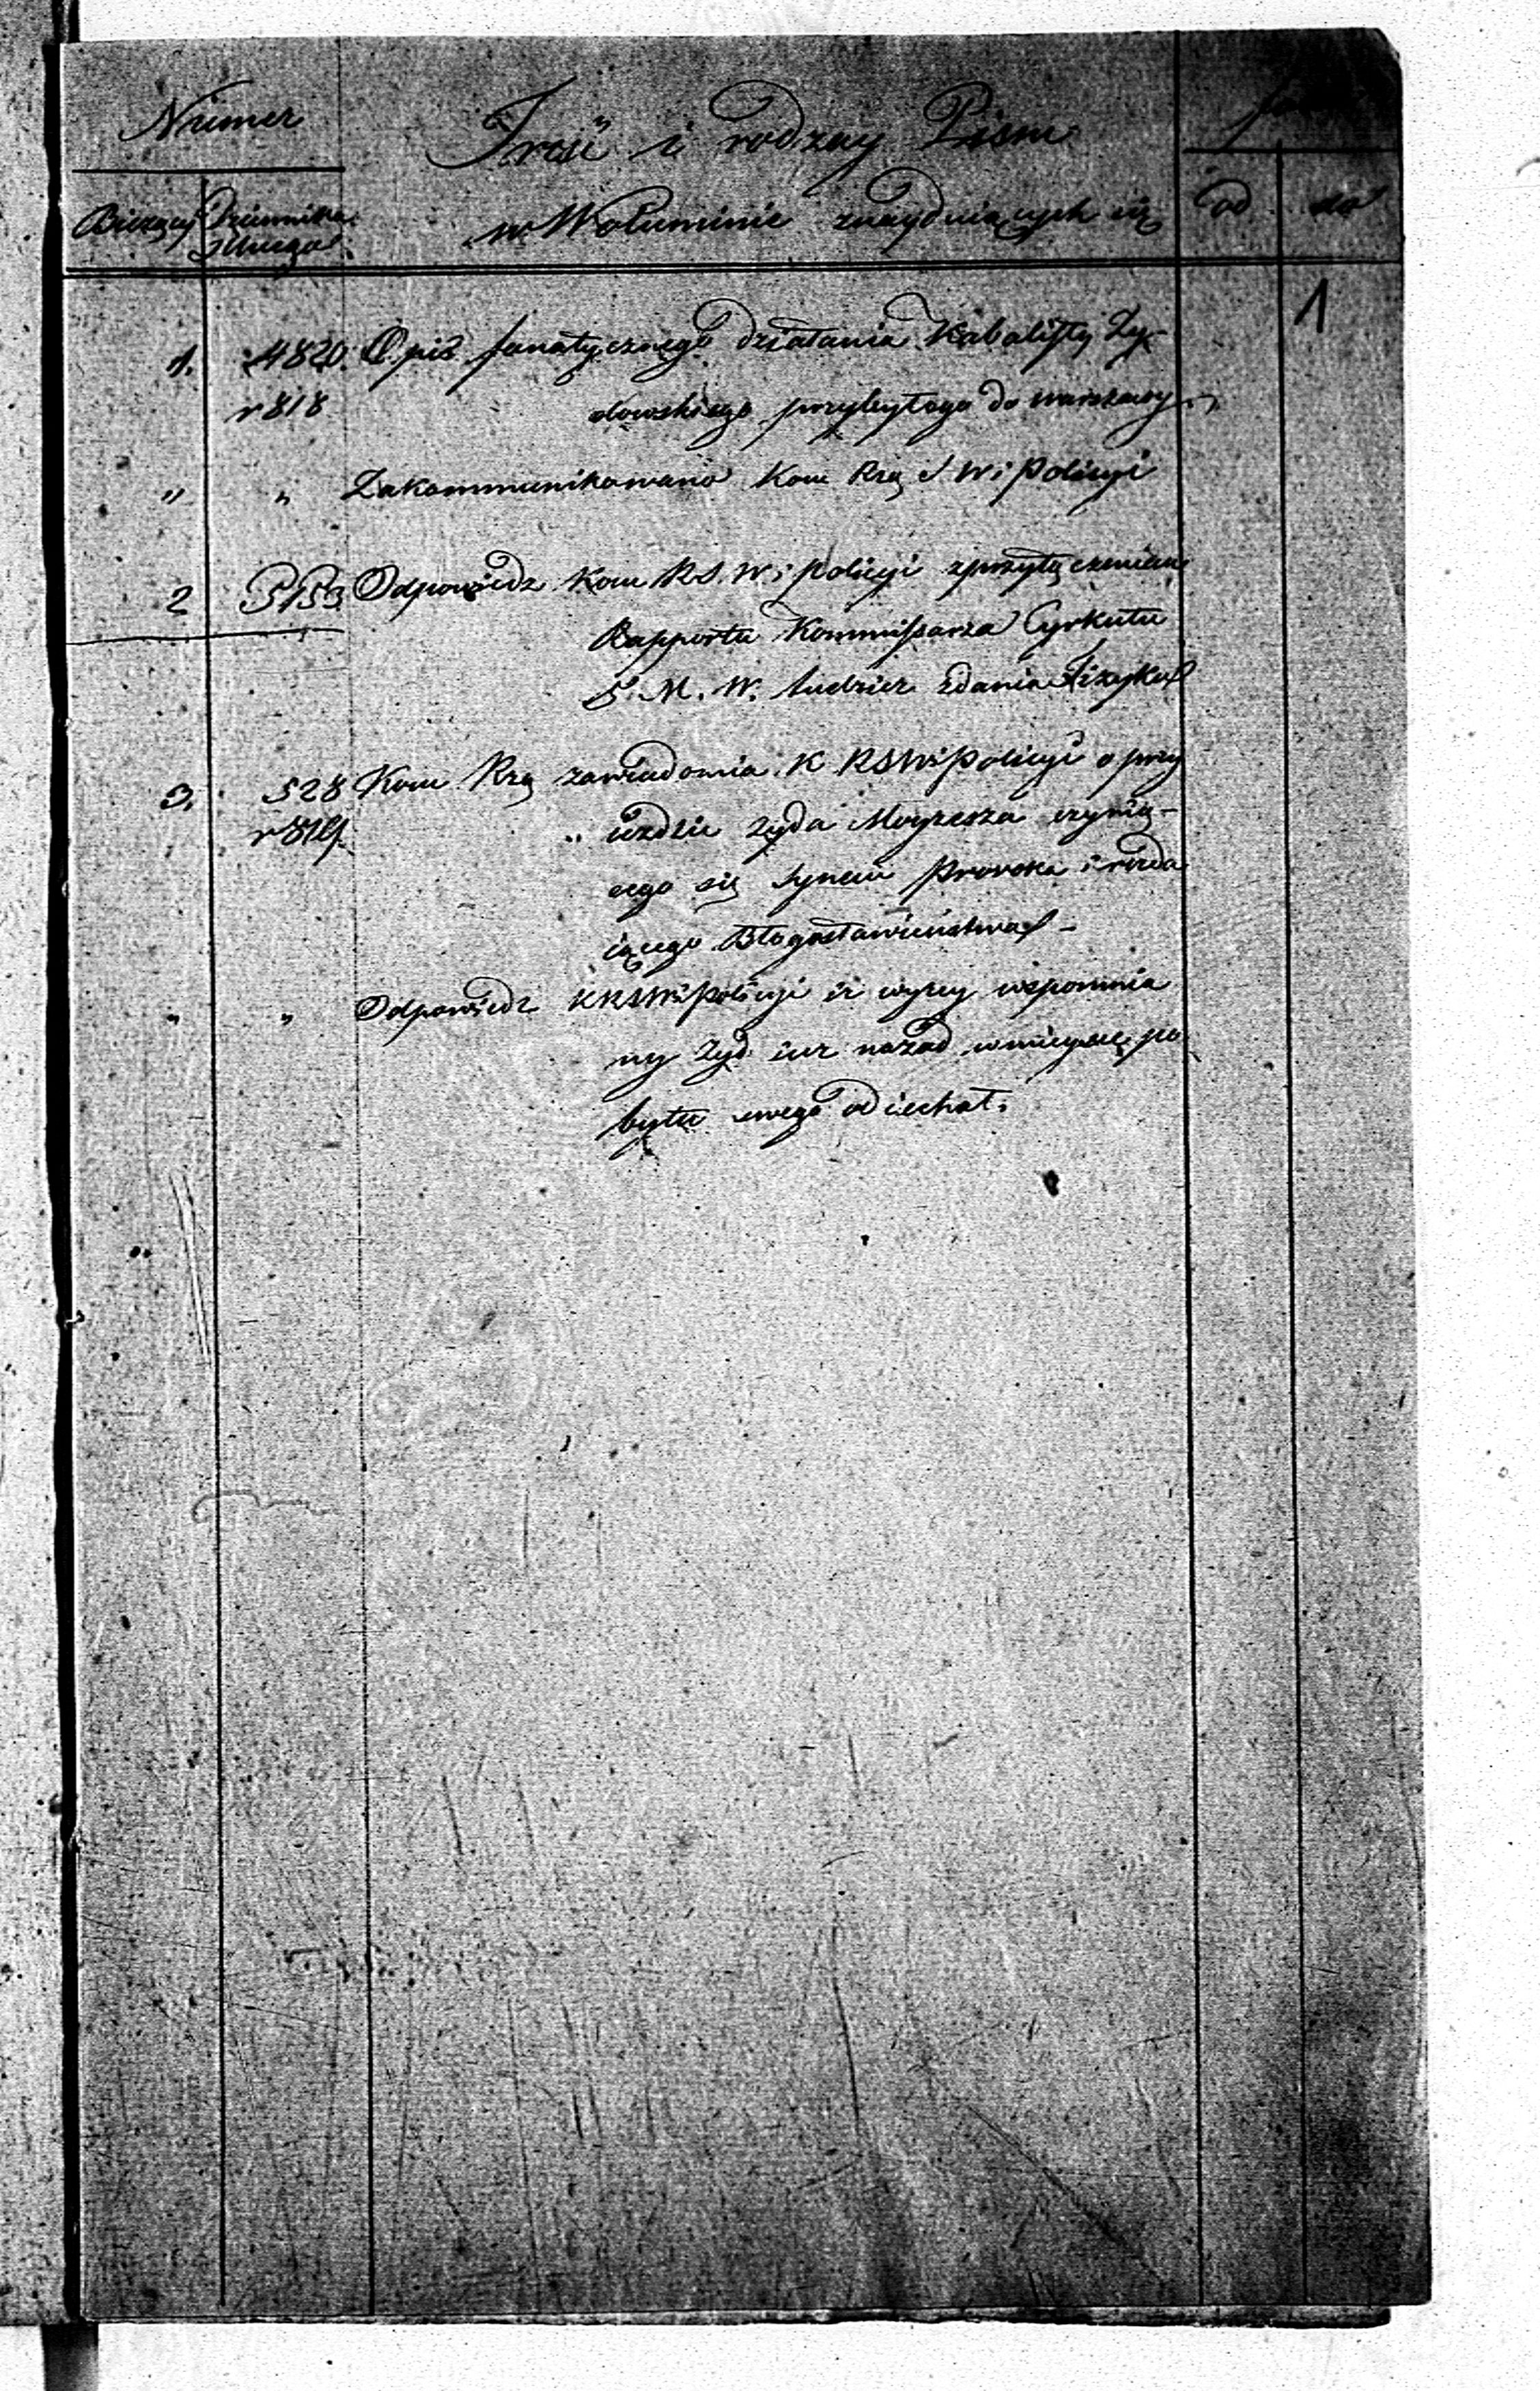 Numer
Treść i rodzay Pism
w Woluminie znayduiących się
Bieżący Dziennika
od do
1
1. 4820. Opis fanatycznego działania Kabalisty Ży-
r 818 dowskiego przybyłego do Warszawy
" " Zakommunikowano Kom Rzą S W i Policyi
2 5153 Odpowiedz Kom RS. W i Policyi z przyłączeniem
Rapportu Kommissarza Cyrkułu
5 M. W. tudzież zdania Fizyka
3. 528 Kom Rzą zawiadomia K RSWiPolicyi o przy
r 819. ieździe Żyda Moyżesza czynią-
cego się synem Proroka i rozda
iącego Błogosławieństwa -
" " Odpowiedz KRSWiPolicyi iż wyżey wspomnia
ny Żyd iuż nazad w mieysce po
bytu swego odiechał.